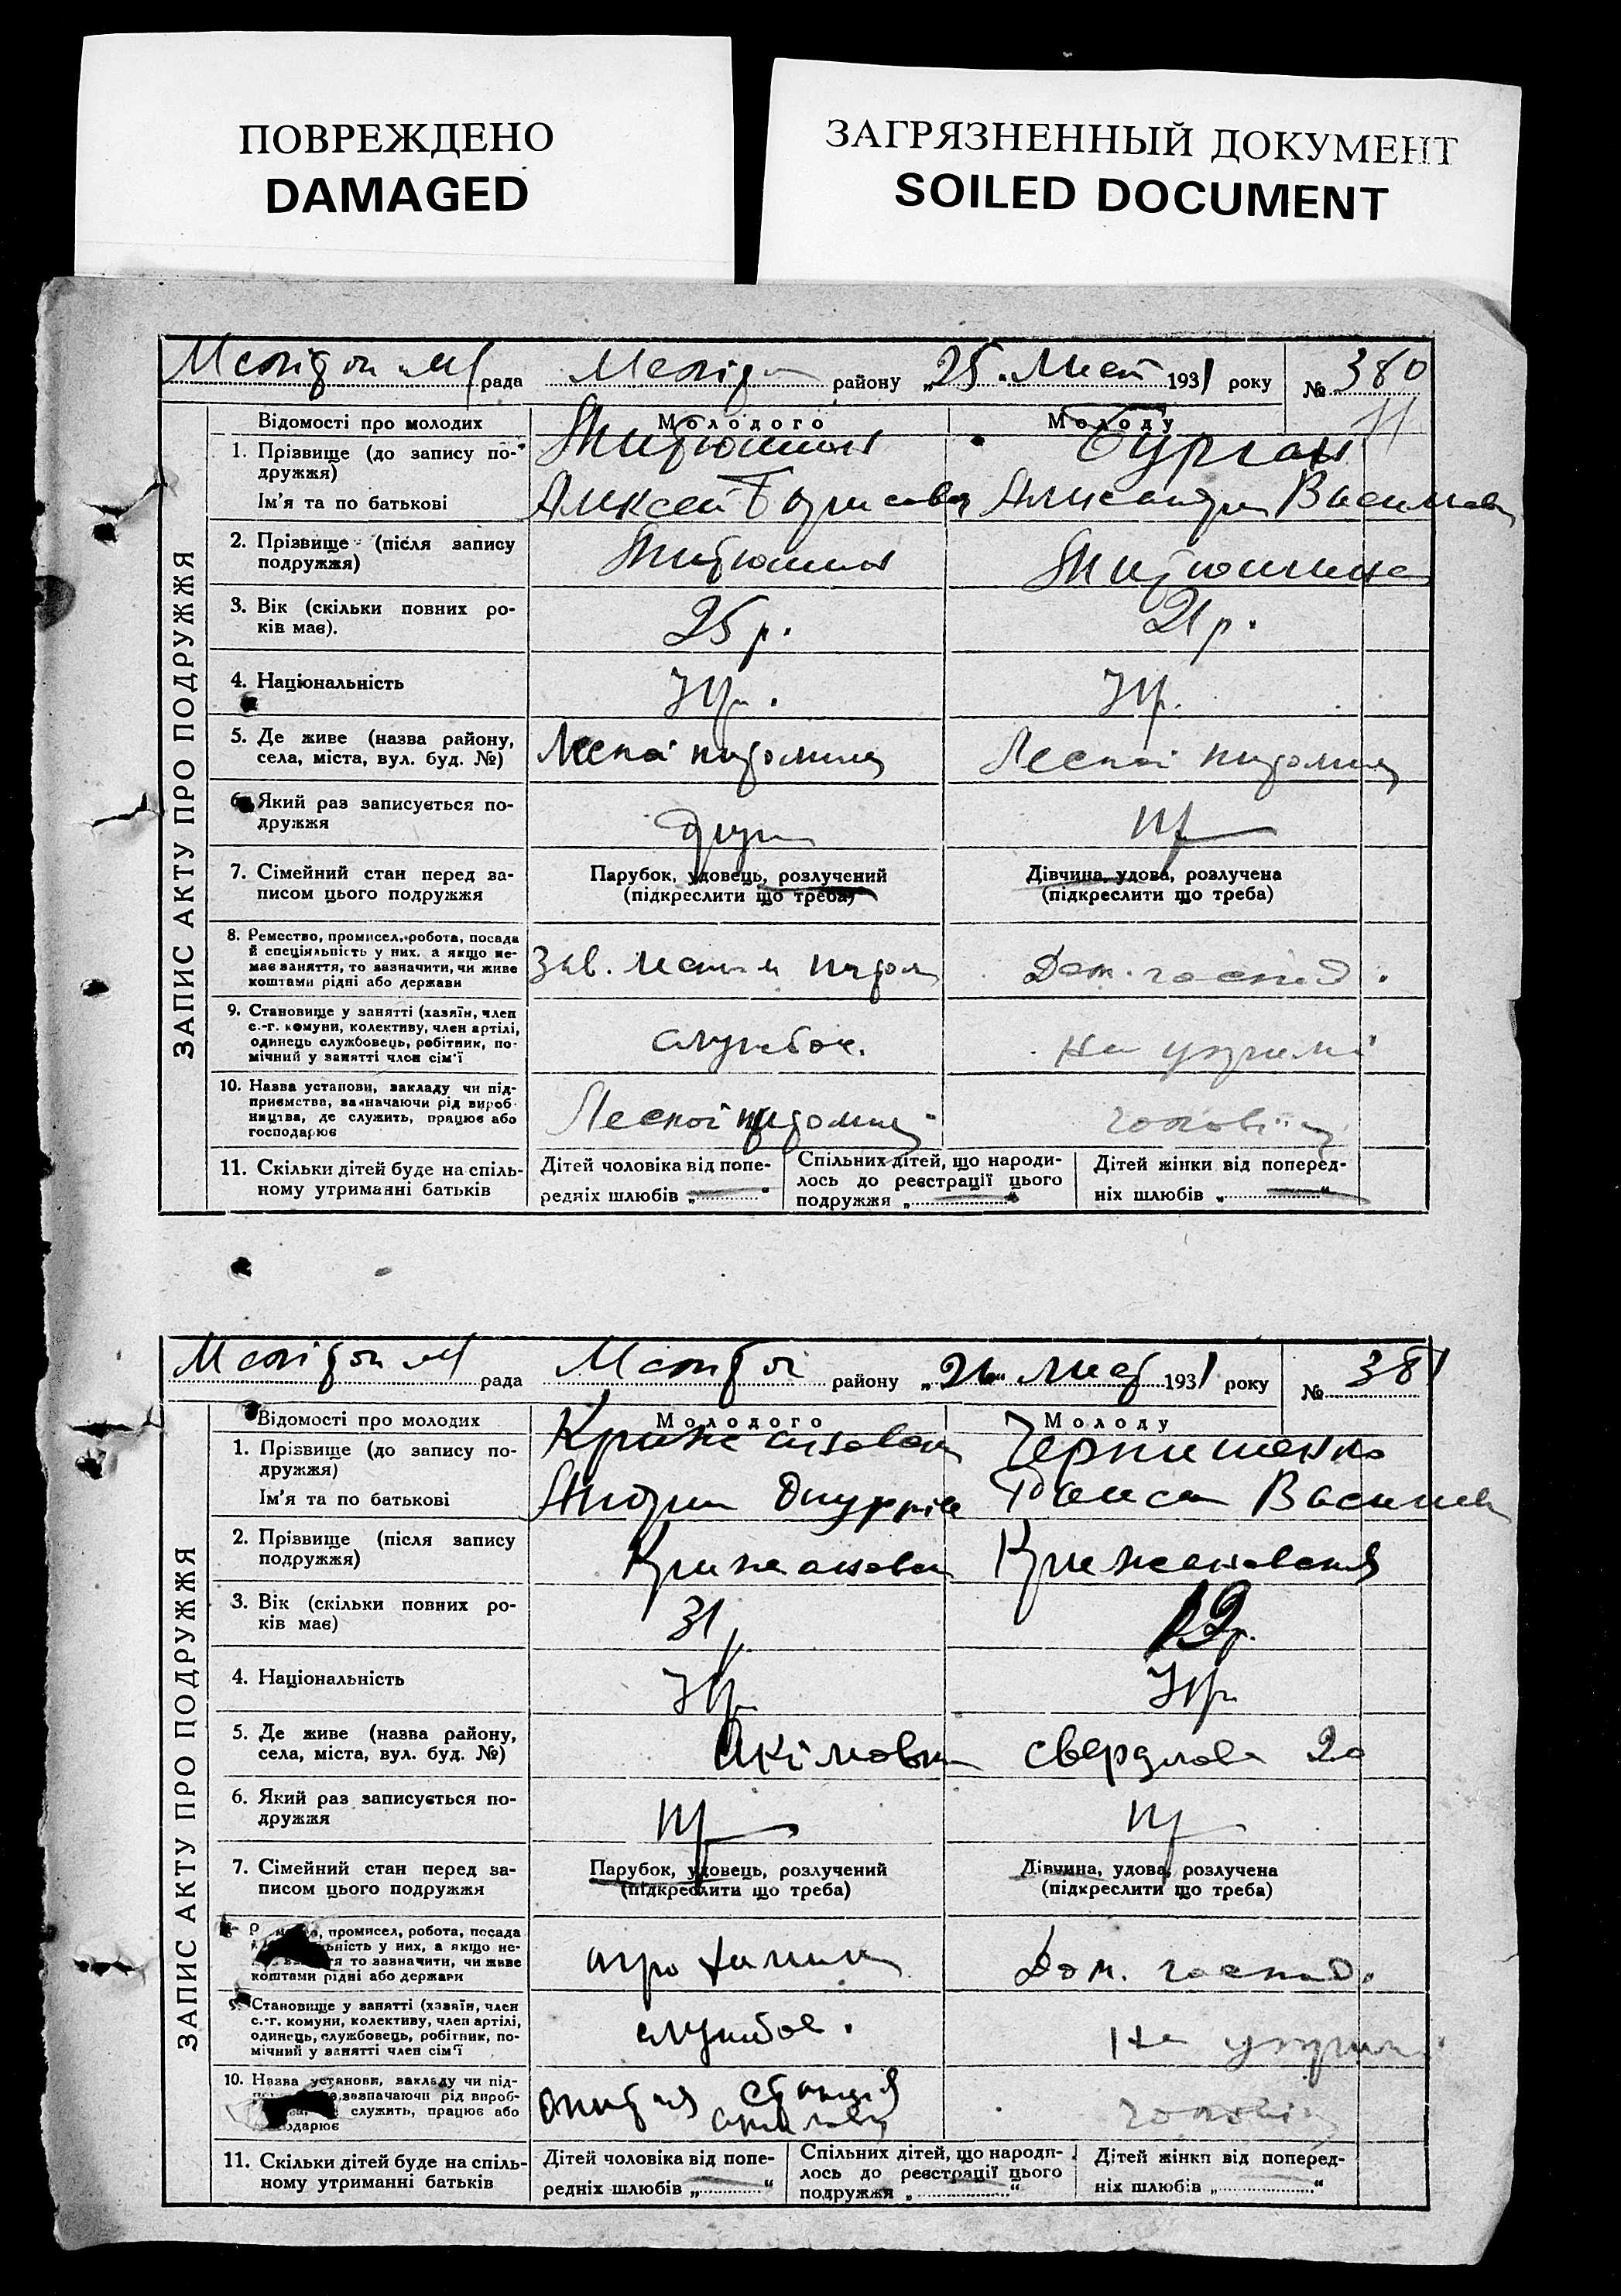 ПОВРЕЖДЕНО
DAMAGED
ЗАГРЯЗНЕННЫЙ ДОКУМЕНТ
SOILED DOCUMENT
рада району „25“ 1931 року № 380
ЗАПИС АКТУ ПРО ПОДРУЖЖЯ
Відомості про молодих
Молодого
Молоду
1. Прізвище (до запису по-
дружжя)
Ім'я та по батькові
Бурган
Алексей Борисов
Александра Василев
2. Прізвище (після запису
подружжя)
3. Вік (скільки повних ро-
ків має).
25 р.
21 р.
4. Національність
Укр.
Укр.
5. Де живе (назва району,
села, міста, вул. буд. №)
Лесной питомник
Лесной питомник
6. Який раз записується по-
дружжя
7. Сімейний стан перед за-
писом цього подружжя
Парубок, удовець, розлучений
(підкреслити що треба)
Дівчина, удова, розлучена
(підкреслити що треба)
8. Ремество, промисел, робота, посада
й спеціяльність у них, а якщо не-
має заняття, то зазначити, чи живе
коштами рідні або держави
Зав.
Дом. господ.
9. Становище у занятті (хазяїн, член
с.-г. комуни, колективу, член артілі,
одинець службовець, робітник, по-
мічний у занятті член сім'ї
службов.
На утримі
10. Назва установи, закладу чи під-
приємства, зазначаючи рід вироб-
ництва, де служить, працює або
господарює
Лесной питомник
чоловіка
11. Скільки дітей буде на спіль-
ному утриманні батьків
Дітей чоловіка від попе-
редніх шлюбів „ “
Спільних дітей, що народи-
лось до реєстрації цього
подружжя „ “
Дітей жінки від поперед-
ніх шлюбів „ “
рада району 1931 року № 381
ЗАПИС АКТУ ПРО ПОДРУЖЖЯ
Відомості про молодих
Молодого
Молоду
1. Прізвище (до запису по-
дружжя)
Ім'я та по батькові
Чернишенко
Раиса Василев
2. Прізвище (після запису
подружжя)
Крижановск
Крижановская
3. Вік (скільки повних ро-
ків має)
31 р.
19 р.
4. Національність
Укр.
Укр.
5. Де живе (назва району,
села, міста, вул. буд. №)
Акімовка
Свердлова 20
6. Який раз записується по-
дружжя
7. Сімейний стан перед за-
писом цього подружжя
Парубок, удовець, розлучений
(підкреслити що треба)
Дівчина, удова, розлучена
(підкреслити що треба)
промисел, робота, посада
у них, а якщо не-
то зазначити, чи живе
коштами рідні або держави
агроном
Дом. господ.
9. Становище у занятті (хазяїн, член
с.-г. комуни, колективу, член артілі,
одинець, службовець, робітник, по-
мічний у занятті член сім'ї
службов.
На утрим
10. Назва установи, закладу чи під-
зазначаючи рід вироб-
служить, працює або
станція
чоловіка
11. Скільки дітей буде на спіль-
ному утриманні батьків
Дітей чоловіка від попе-
редніх шлюбів „ “
Спільних дітей, що народи-
лось до реєстрації цього
подружжя „ “
Дітей жінки від поперед-
ніх шлюбів „ “